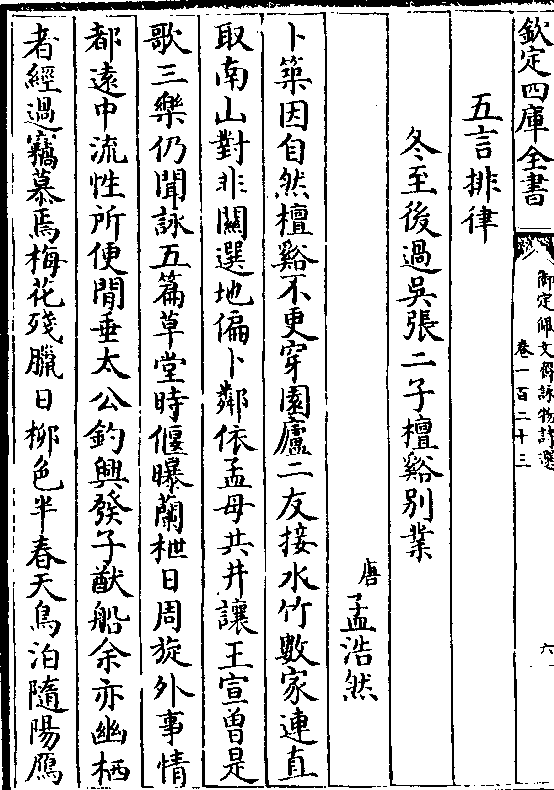 欽定四庫全書
御定佩文齋詠物詩選
卷一百二十三
六
五言排律
冬至後過吳張二子檀谿別業
唐 孟浩然
卜築因自然檀谿不更穿園廬二友接水竹數家連直
取南山對非關選地偏卜鄰依孟母共井讓王宣曾是
歌三樂仍聞詠五篇草堂時偃曝蘭枻日周旋外事情
都遠中流性所便閒垂太公釣興發子猷船余亦幽栖
者經過竊慕焉梅花殘臘日柳色半春天鳥泊隨陽鴈